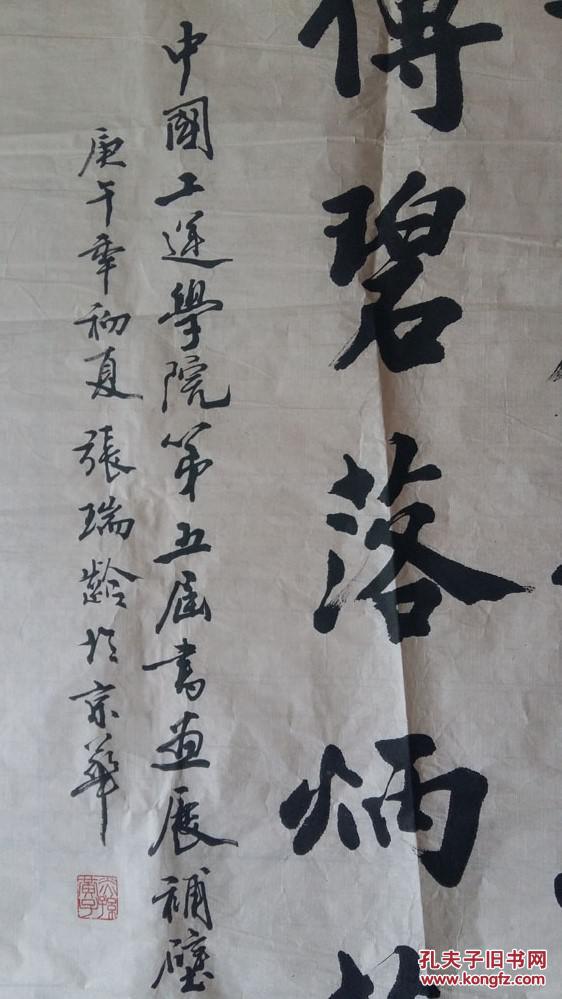 傳碧落炳
中國工運學院第五届書畫展補壁
庚午年初夏張瑞齡於京華
孔夫子旧书网
www.kongfz.com